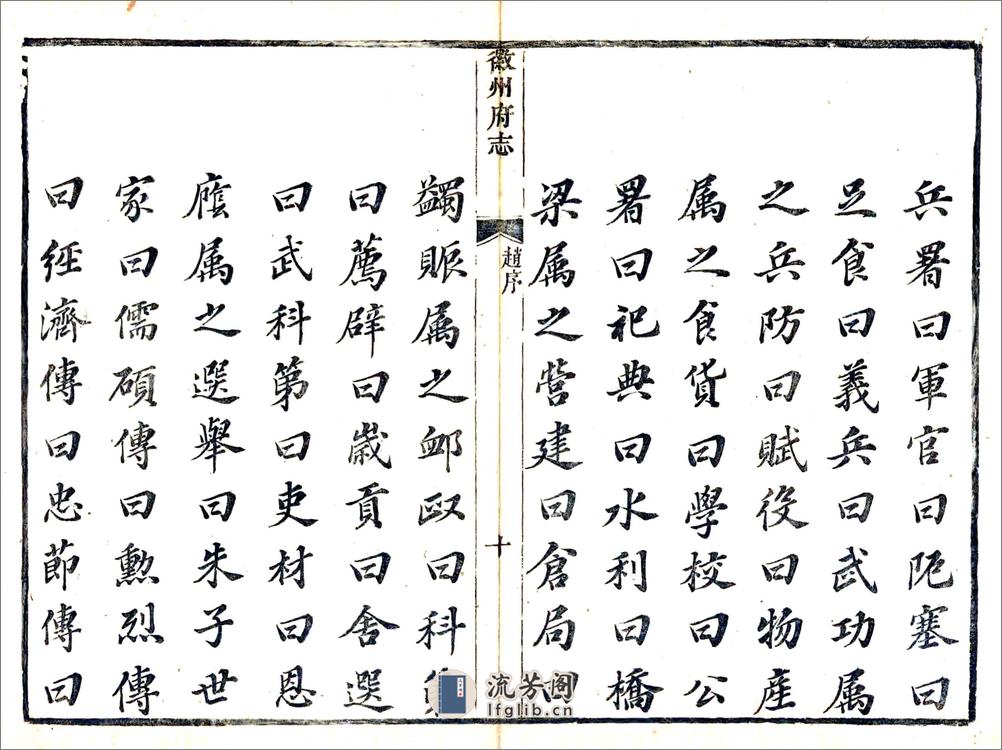 兵署曰軍官曰阨塞曰
足食曰義兵曰武功属
之兵防曰賦役曰物産
属之食貨曰學校曰公
署曰祀典曰水利曰橋
梁属之營建曰倉局曰
徽州府志
趙序
十
蠲賑属之邺政曰科第
曰薦辟曰歲貢曰舍選
曰武科第曰吏材曰恩
廕属之選舉曰朱子世
家曰儒碩傳曰勲烈傳
曰經濟傳曰忠節傳曰
流芳阁
lfglib.cn